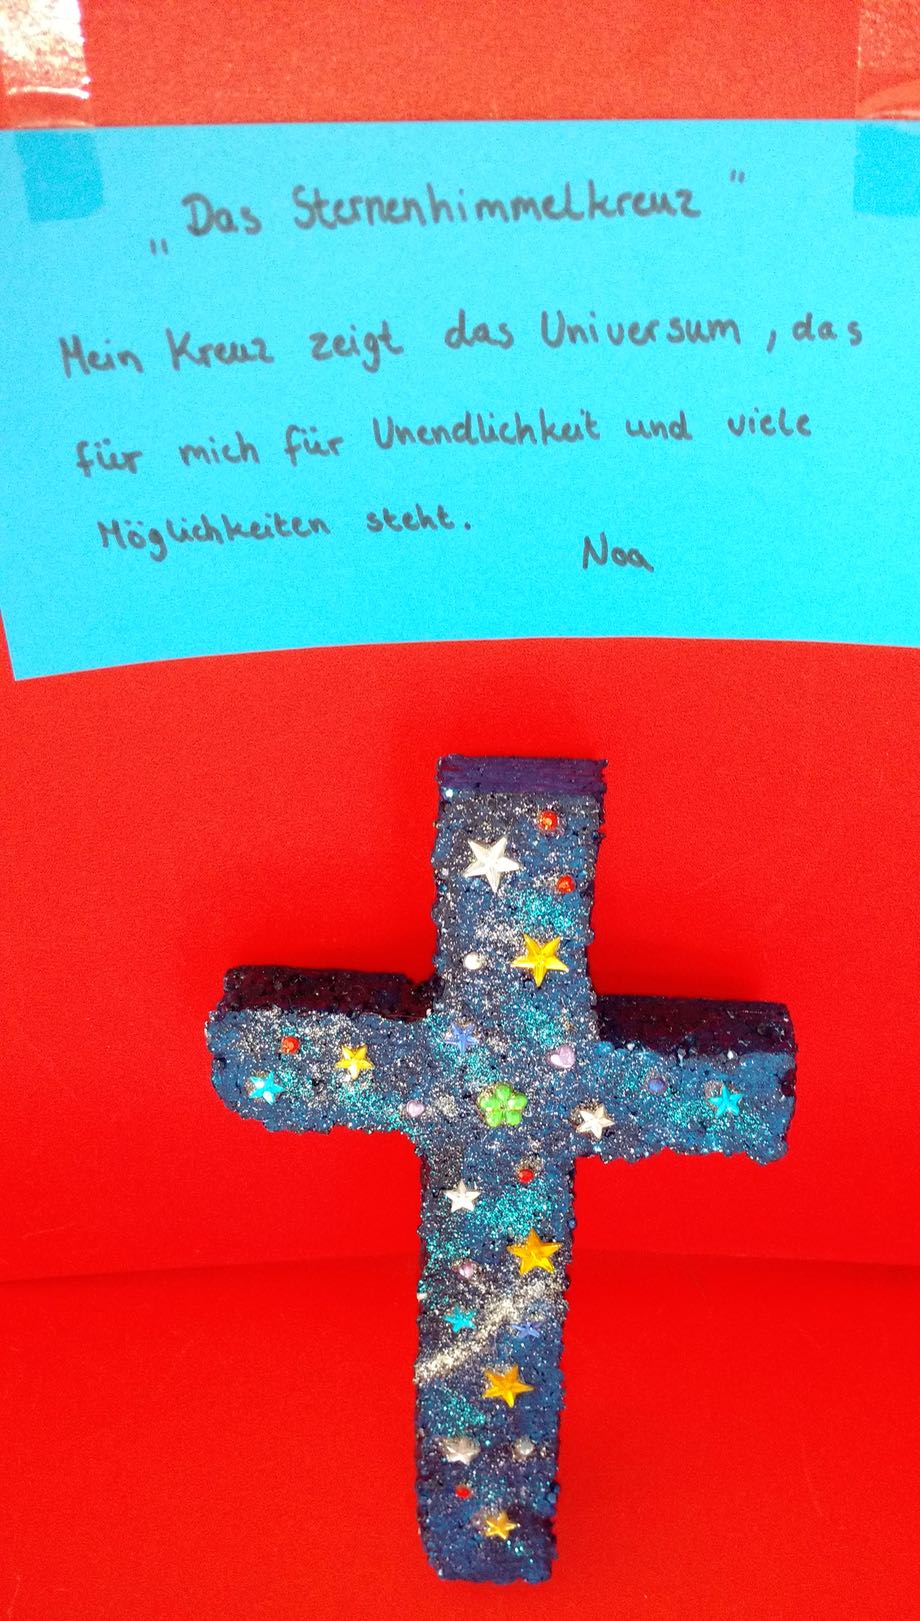 „Das Sternenhimmelkreuz"
Mein Kreuz zeigt das Universum, das
für mich für Unendlichkeit und viele
Möglichkeiten steht.
Noa